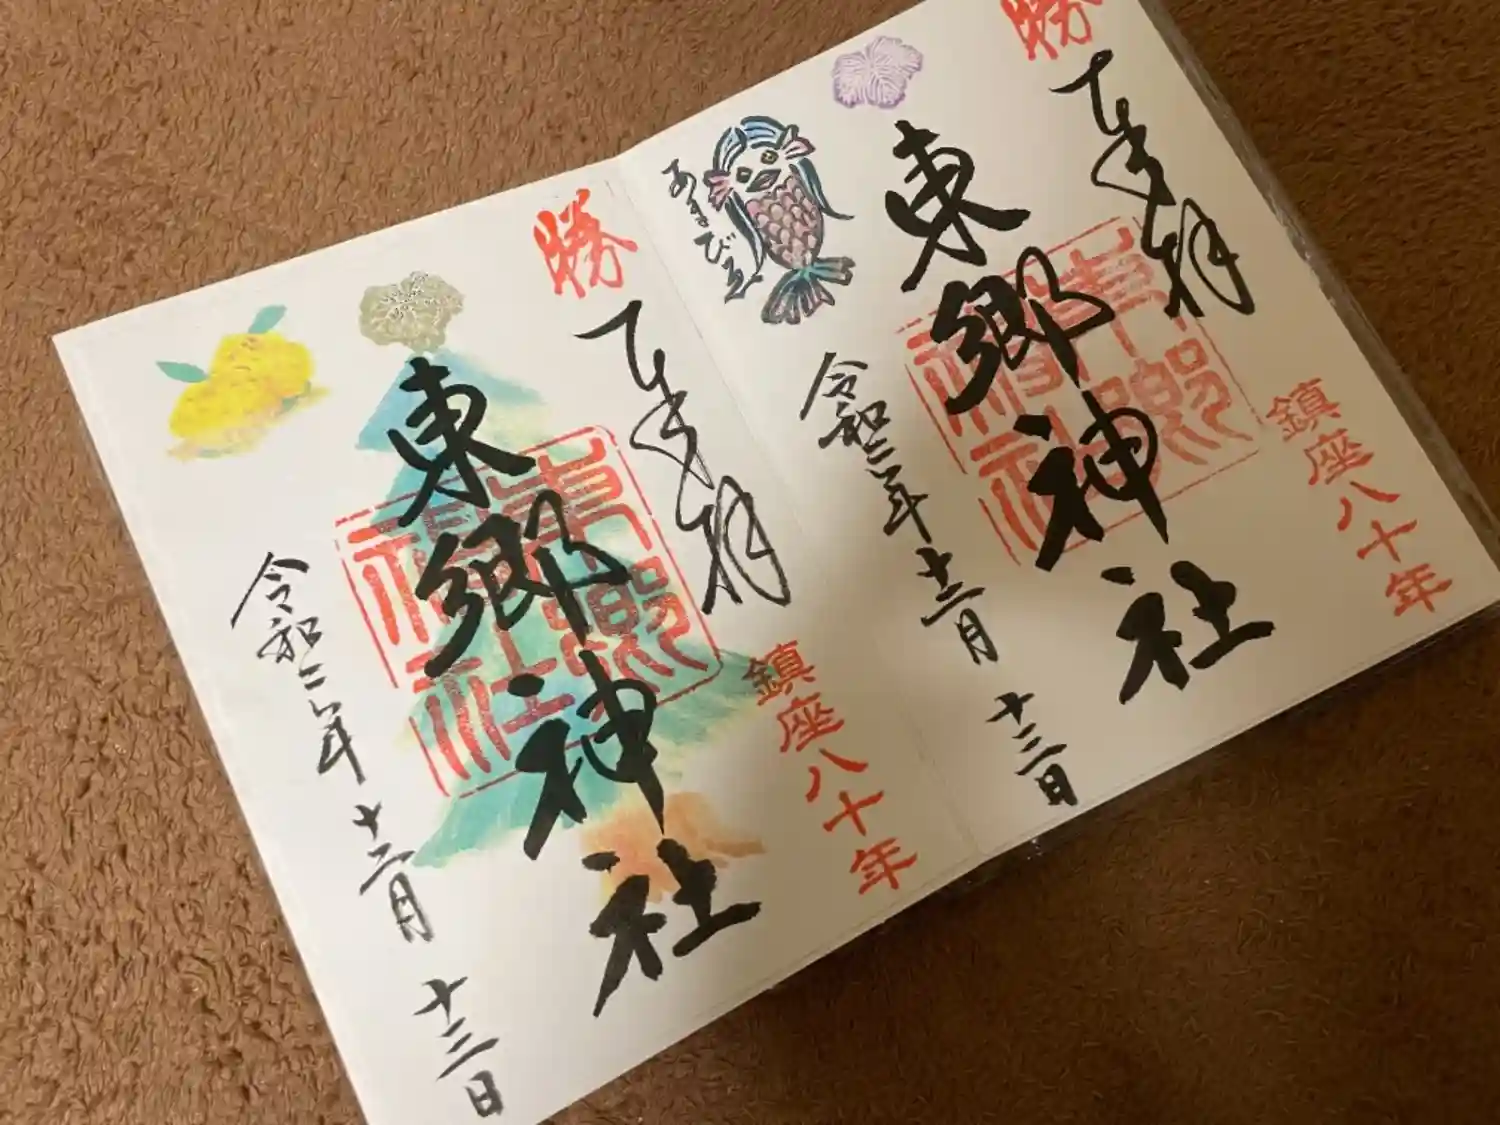 勝
奉拝
鎮座八十年
東郷神社
東郷神社
あまびゑ
令和二年十二月十三日
勝
奉拝
鎮座八十年
東郷神社
東郷神社
令和二年十二月十三日